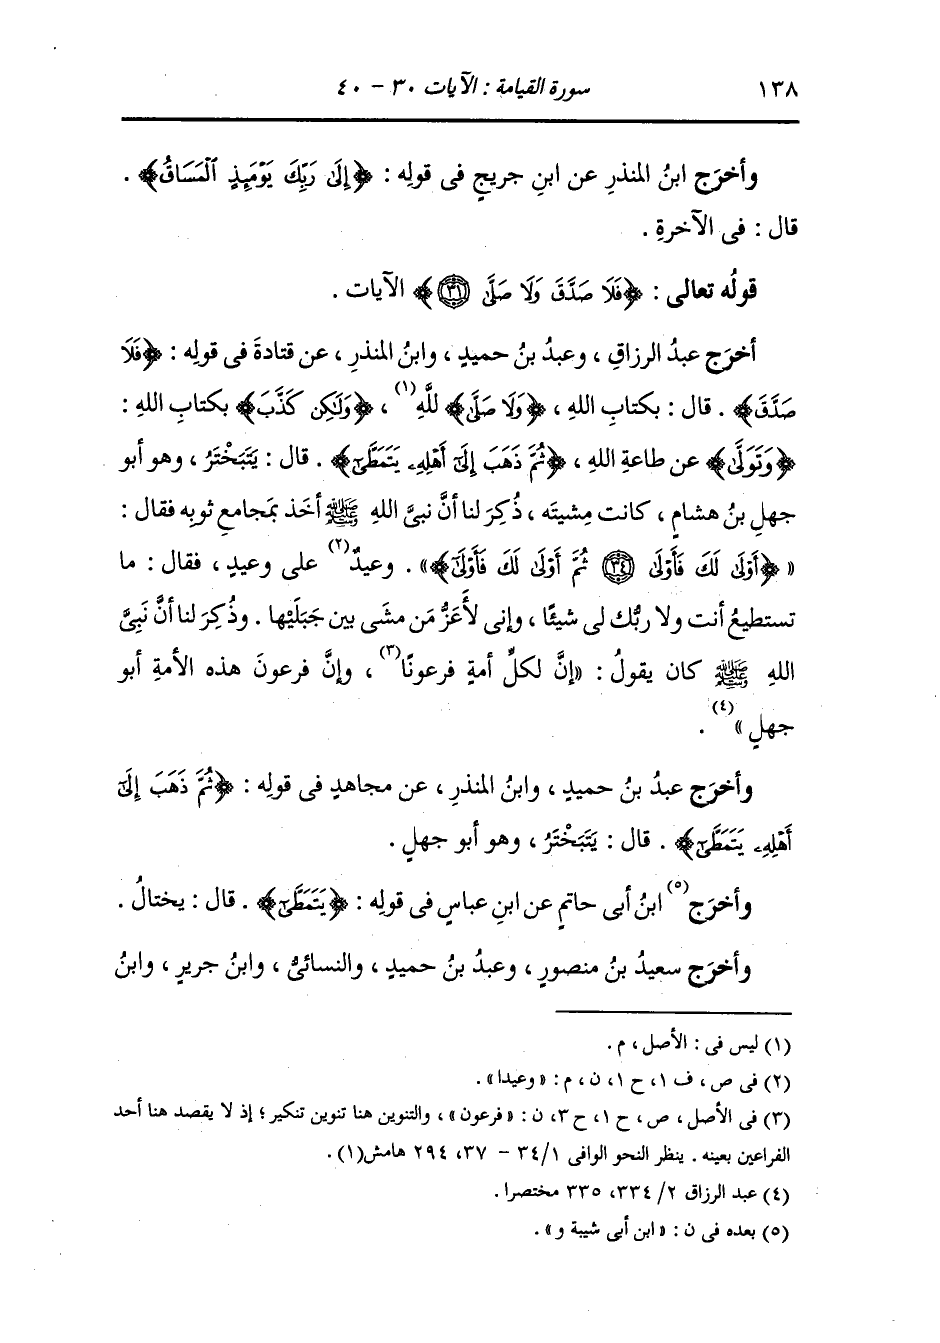 ١٣٨ سورة القيامة : الآيات ٣٠ - ٤٠
وأخرَج ابنُ المنذرِ عن ابنِ جريجٍ فى قولِه : ﴿إِلَىٰ رَبِّكَ يَوْمَئِذٍ ٱلْمَسَاقُ﴾ .
قال : فى الآخرةِ .
قولُه تعالى : ﴿فَلَا صَدَّقَ وَلَا صَلَّىٰ ٣١﴾ الآيات .
أخرَج عبدُ الرزاقِ ، وعبدُ بنُ حميدٍ ، وابنُ المنذرِ ، عن قتادةَ فى قولِه : ﴿فَلَا
صَدَّقَ﴾ . قال : بكتابِ اللهِ ، ﴿وَلَا صَلَّىٰ﴾ للَّهِ(١) ، ﴿وَلَٰكِن كَذَّبَ﴾ بكتابِ اللهِ :
﴿وَتَوَلَّىٰ﴾ عن طاعةِ اللهِ ، ﴿ثُمَّ ذَهَبَ إِلَىٰٓ أَهْلِهِۦ يَتَمَطَّىٰٓ﴾ . قال : يَتَبَخْتَرُ ، وهو أبو
جهلِ بنُ هشامٍ ، كانت مِشيتَه ، ذُكِرَ لنا أنَّ نبىَّ اللهِ ﷺ أخَذ بمَجامعِ ثوبِه فقال :
« ﴿أَوْلَىٰ لَكَ فَأَوْلَىٰ ٣٤ ثُمَّ أَوْلَىٰ لَكَ فَأَوْلَىٰٓ﴾» . وعيدٌ(٢) على وعيدٍ ، فقال : ما
تستطيعُ أنت ولا ربُّك لى شيئًا ، وإنى لأَعَزُّ مَن مشَى بين جَبَلَيْها . وذُكِرَ لنا أنَّ نَبِىَّ
اللهِ ﷺ كان يقولُ : «إنَّ لكلِّ أمةٍ فرعونًا(٣) ، وإنَّ فرعونَ هذه الأمةِ أبو
جهلٍ »(٤) .
وأخرَج عبدُ بنُ حميدٍ ، وابنُ المنذرِ ، عن مجاهدٍ فى قولِه : ﴿ثُمَّ ذَهَبَ إِلَىٰٓ
أَهْلِهِۦ يَتَمَطَّىٰٓ﴾ . قال : يَتَبَخْتَرُ ، وهو أبو جهلٍ .
وأخرَج(٥) ابنُ أبى حاتمٍ عن ابنِ عباسٍ فى قولِه : ﴿يَتَمَطَّىٰٓ﴾ . قال : يختالُ .
وأخرَج سعيدُ بنُ منصورٍ ، وعبدُ بنُ حميدٍ ، والنسائىُّ ، وابنُ جريرٍ ، وابنُ
(١) ليس فى : الأصل ، م .
(٢) فى ص ، ف ١ ، ح ١ ، ن ، م : «وعيدا» .
(٣) فى الأصل ، ص ، ح ١ ، ح ٣ ، ن : «فرعون» ، والتنوين هنا تنوين تنكير ؛ إذ لا يقصد هنا أحد
الفراعين بعينه . ينظر النحو الوافى ٣٤/١ - ٣٧ ، ٢٩٤ هامش(١) .
(٤) عبد الرزاق ٢/ ٣٣٤ ، ٣٣٥ مختصرا .
(٥) بعده فى ن : «ابن أبى شيبة و» .